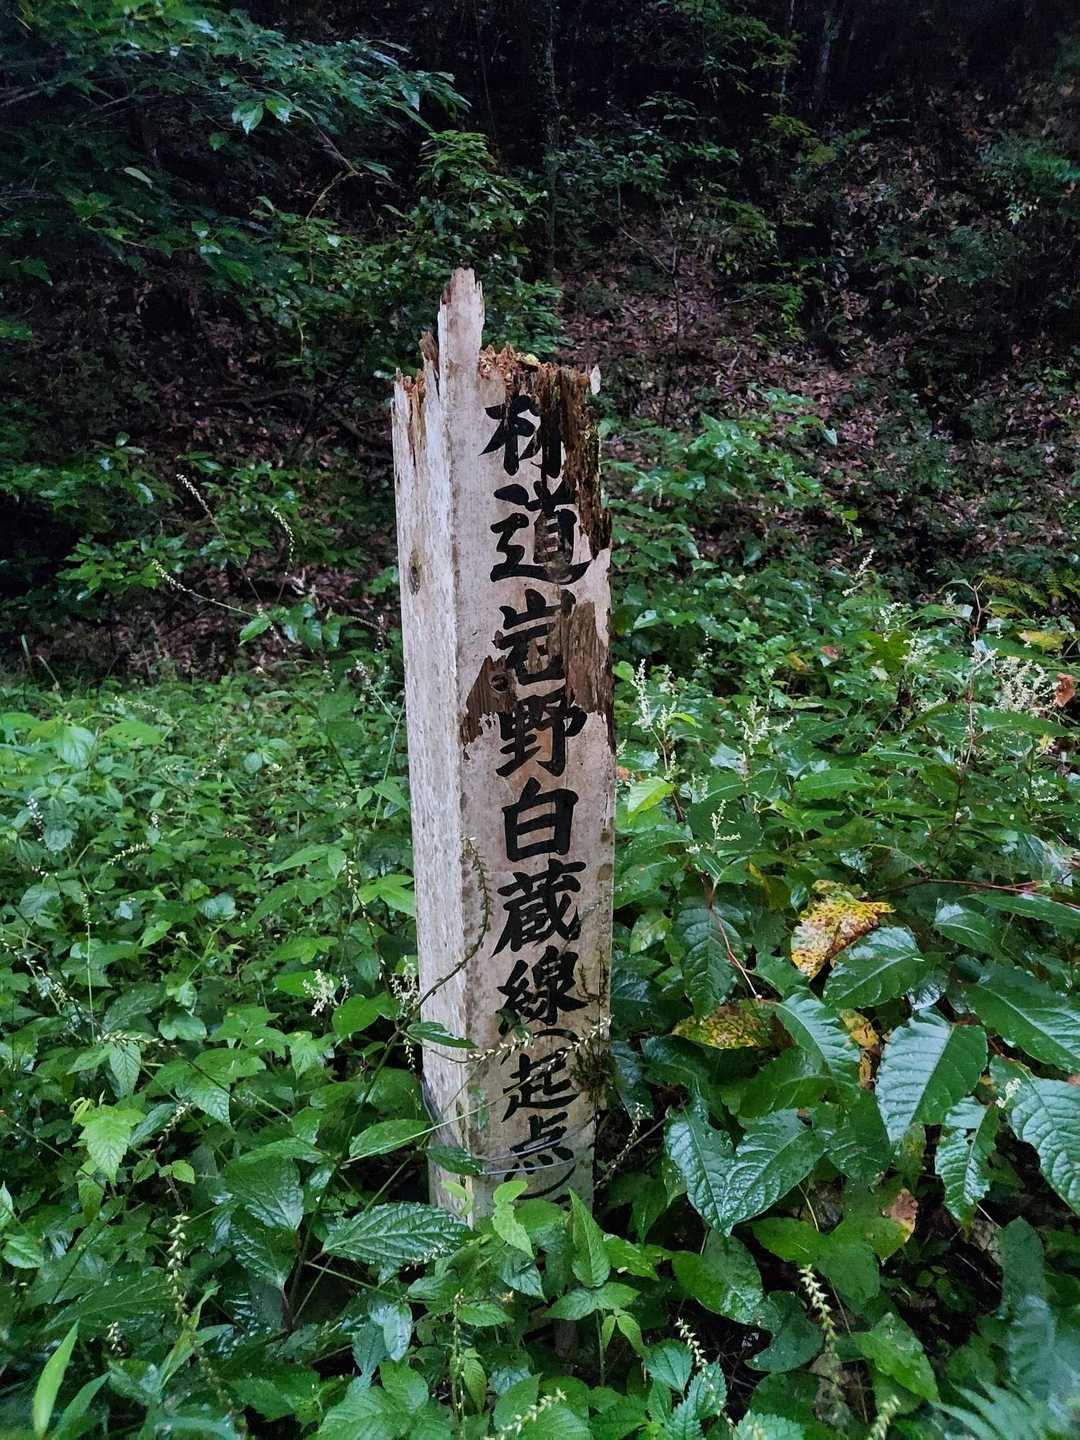 林道野白蔵線(起点)